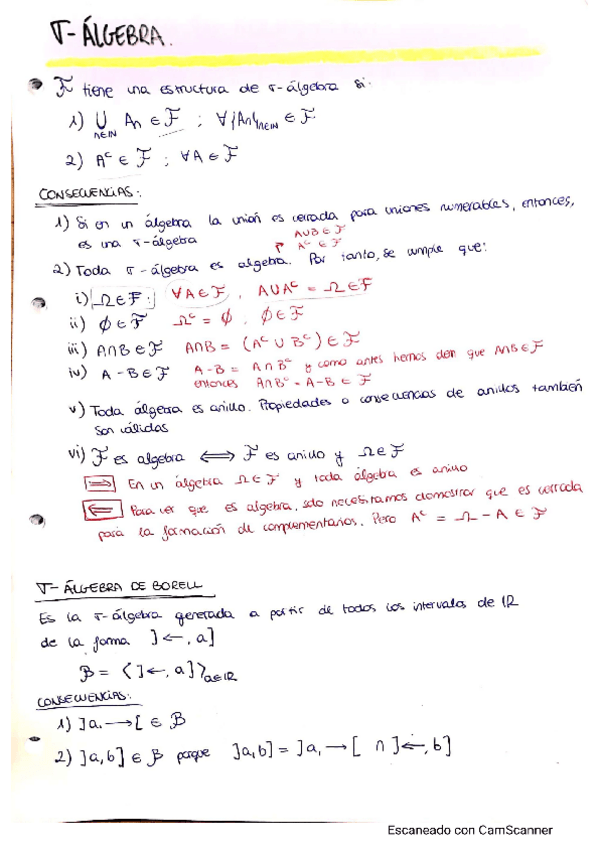 σ-ÁLGEBRA.
F tiene una estructura de σ-álgebra si:
1) ⋃n∈ℕ An ∈ F ; ∀{An}n∈ℕ ∈ F
2) Aᶜ ∈ F ; ∀A ∈ F
CONSECUENCIAS:
1) Si en un álgebra la unión es cerrada para uniones numerables, entonces,
es una σ-álgebra
A∪B ∈ F
Aᶜ ∈ F
2) Toda σ-álgebra es algebra. Por tanto, se cumple que:
i) Ω∈F. ∀A∈F, A∪Aᶜ = Ω∈F
ii) ∅∈F Ωᶜ = ∅, ∅∈F
iii) A∩B∈F A∩B = (Aᶜ∪Bᶜ)∈F
iv) A-B∈F A-B = A∩Bᶜ y como antes hemos dem que A∩B∈F
entonces A∩Bᶜ = A-B ∈ F
v) Toda álgebra es anillo. Propiedades o consecuencias de anillos también
son válidas
vi) F es algebra ⟺ F es anillo y Ω∈F
⟹ En un álgebra Ω∈F y toda álgebra es anillo
⟸ Para ver que es algebra, solo necesitamos demostrar que es cerrada
para la formación de complementarios. Pero Aᶜ = Ω-A ∈ F
σ-ÁLGEBRA DE BORELL
Es la σ-álgebra generada a partir de todos los intervalos de ℝ
de la forma ]←, a]
B = ⟨]←, a]⟩a∈ℝ
CONSECUENCIAS:
1) ]a, →[ ∈ B
2) ]a,b] ∈ B porque ]a,b] = ]a, →[ ∩ ]←, b]
Escaneado con CamScanner